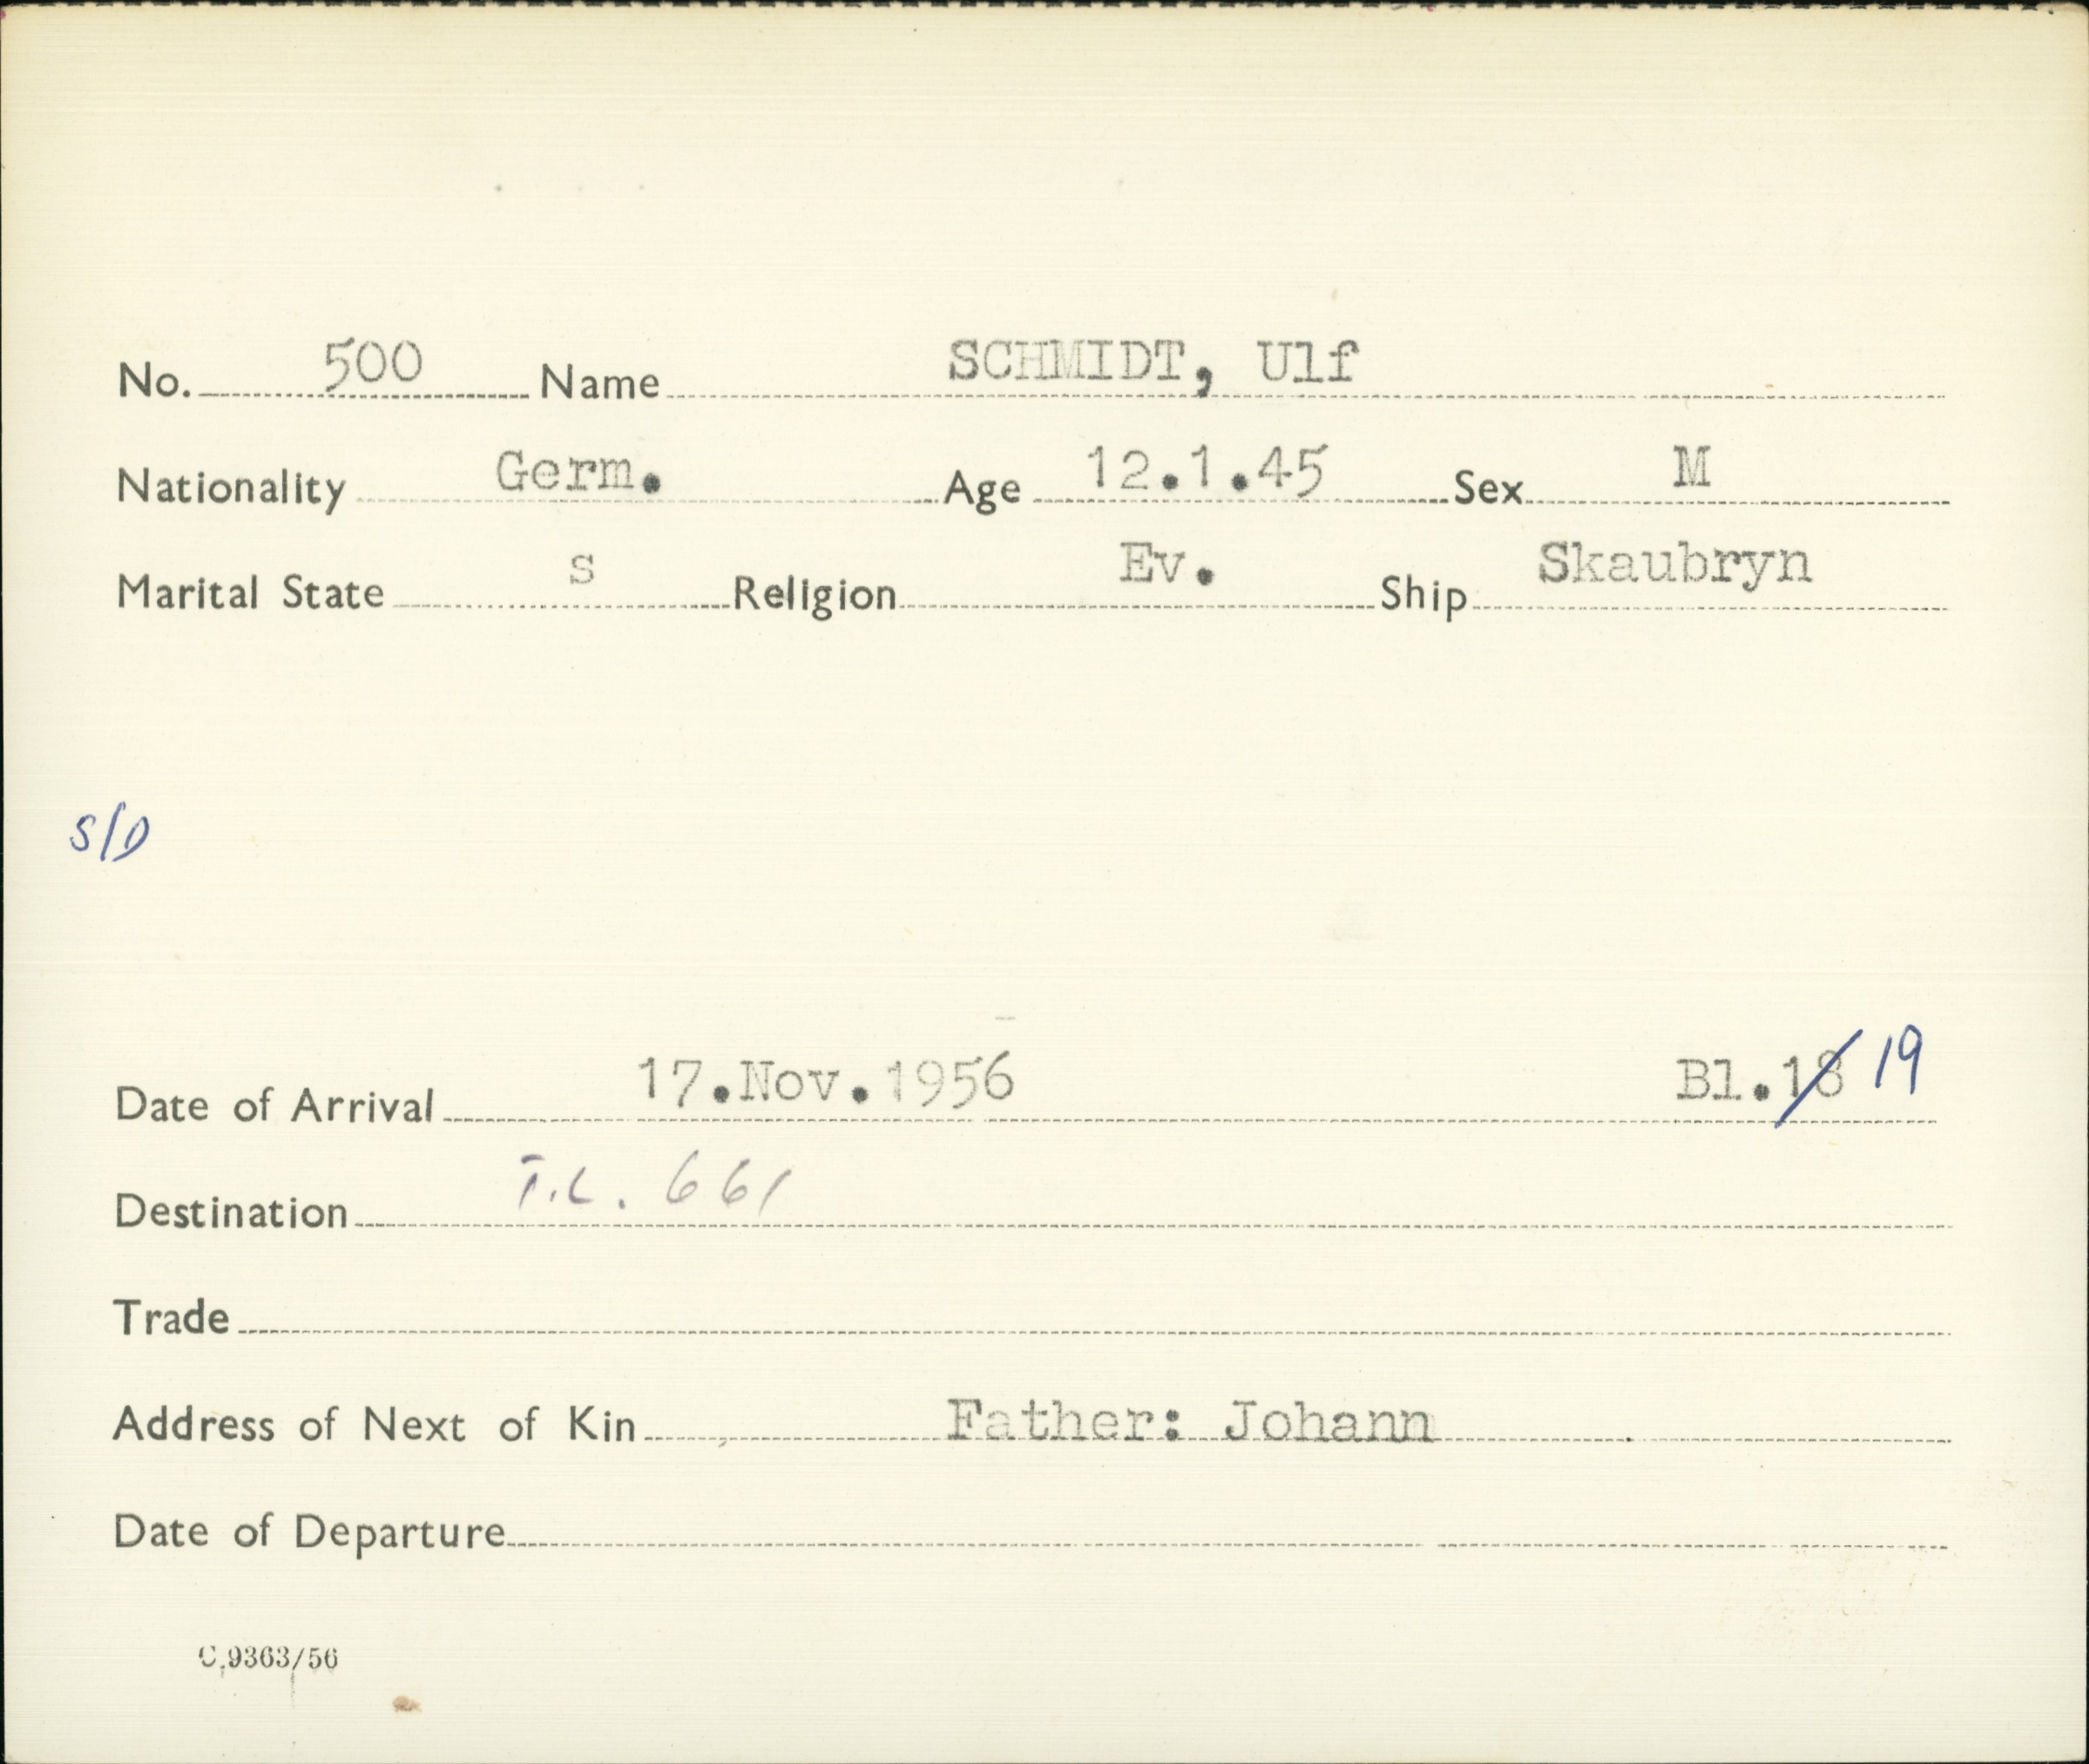 No. 500 Name SCHMIDT, Ulf
Nationality Germ. Age 12.1.45 Sex M
Marital State s Religion Ev. Ship Skaubryn
S/D
Date of Arrival 17.Nov.1956 Bl.18 19
Destination T.L. 661
Trade
Address of Next of Kin Father: Johann
Date of Departure
C.9363/56